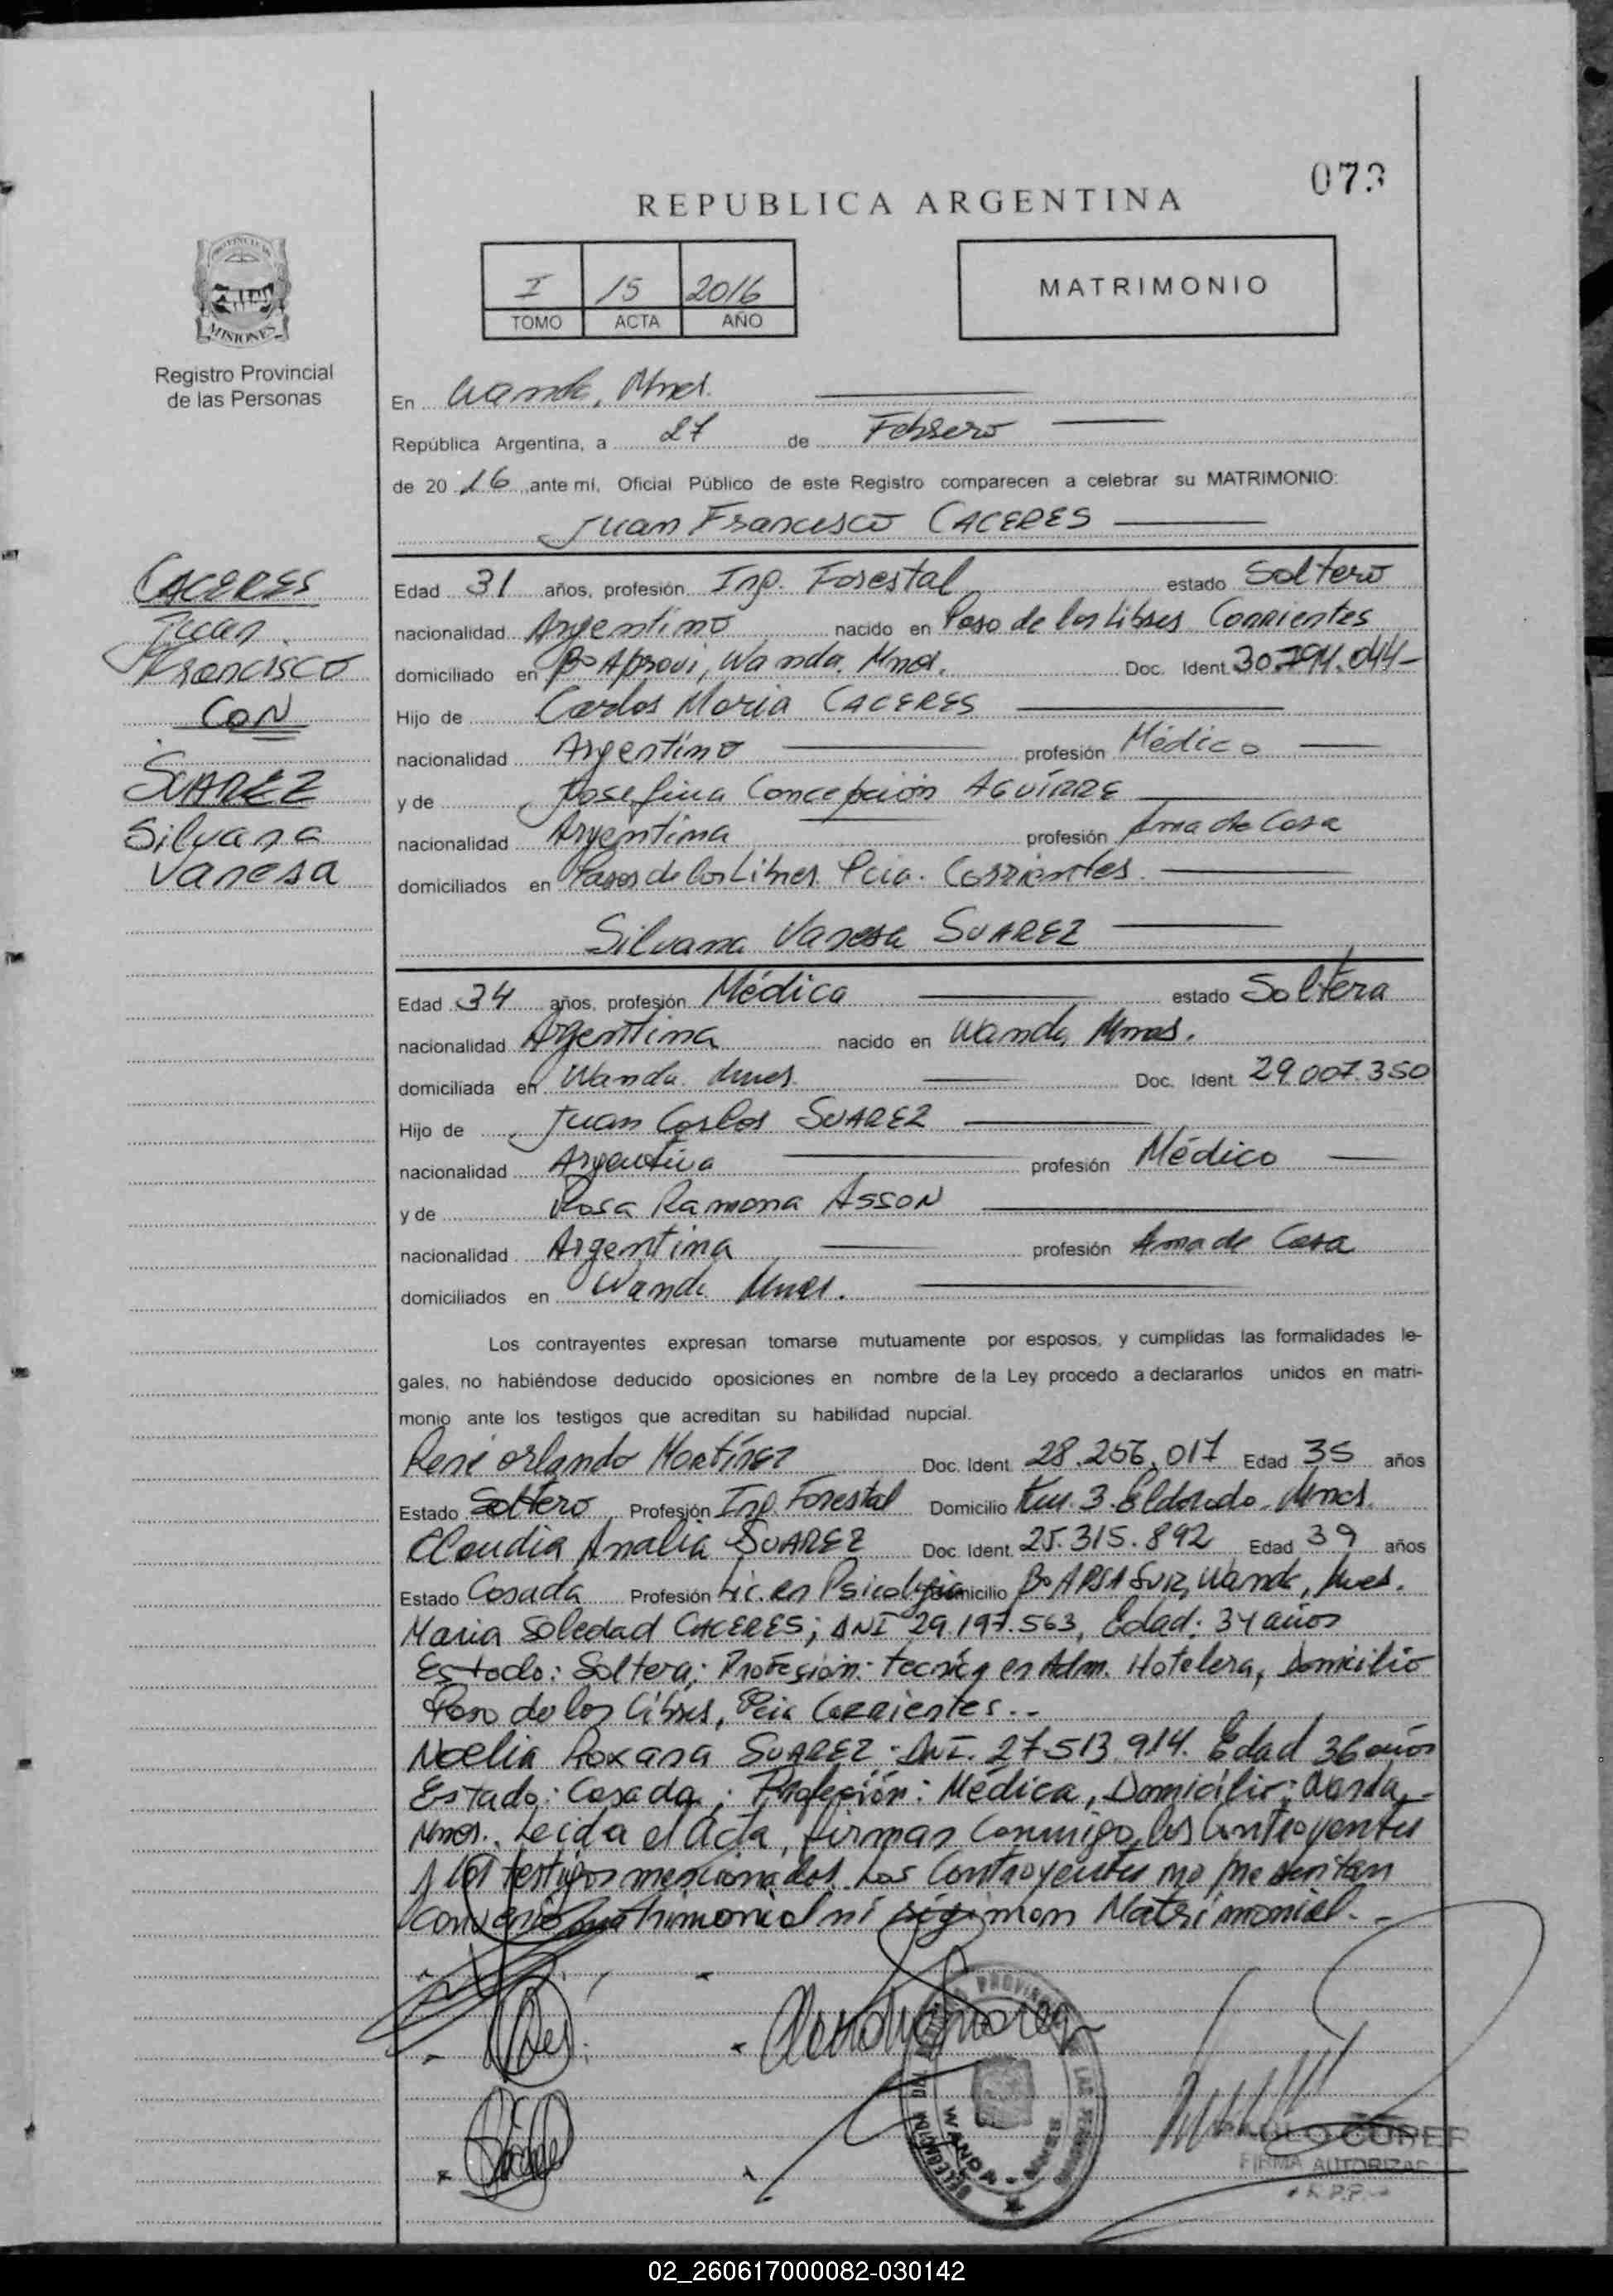 073
REPUBLICA ARGENTINA
I 15 2016
TOMO ACTA AÑO
MATRIMONIO
MISIONES
Registro Provincial
de las Personas
En Wanda, Mnes.
República Argentina, a 27 de Febrero
de 20 16 ,ante mí, Oficial Público de este Registro comparecen a celebrar su MATRIMONIO:
Juan Francisco CACERES
CACERES
Juan
Francisco
CON
SUAREZ
Silvana
Vanesa
Edad 31 años, profesión Ing. Forestal estado Soltero
nacionalidad Argentino nacido en Paso de los Libres Corrientes
domiciliado en Bº, Wanda, Mnes. Doc. Ident. 30.794.044-
Hijo de Carlos Maria CACERES
nacionalidad Argentino profesión Médico
y de Josefina Concepción AGUÍRRE
nacionalidad Argentina profesión Ama de Casa
domiciliados en Pasos de los Libres Pcia. Corrientes
Silvana Vanesa SUAREZ
Edad 34 años, profesión Médica estado Soltera
nacionalidad Argentina nacido en Wanda, Mnes.
domiciliada en Wanda Mnes. Doc. Ident. 29.007.350
Hijo de Juan Carlos SUAREZ
nacionalidad Argentina profesión Médico
y de Rosa Ramona ASSON
nacionalidad Argentina profesión Ama de Casa
domiciliados en Wanda Mnes.
Los contrayentes expresan tomarse mutuamente por esposos, y cumplidas las formalidades le-
gales, no habiéndose deducido oposiciones en nombre de la Ley procedo a declararlos unidos en matri-
monio ante los testigos que acreditan su habilidad nupcial.
René Orlando Martínez Doc. Ident. 28.256.017 Edad 35 años
Estado Soltero Profesión Ing. Forestal Domicilio Km. 3. Eldorado. Mnes.
Claudia Analia SUAREZ Doc. Ident. 25.315.892 Edad 39 años
Estado Casada Profesión Lic. en Psicología Domicilio Bº Wanda, Mnes.
Maria Soledad CACERES; DNI 29.197.563, Edad: 34 años
Estado: Soltera; Profesión: Tecnica en Adm. Hotelera, Domicilio
Paso de los Libres, Pcia Corrientes.-
Noelia Roxana SUAREZ - DNI. 27513.914. Edad 36 años
Estado: Casada; Profesión: Médica, Domicilio: Wanda,-
Mnes. Leida el Acta, firman conmigo, los Contrayentes
y los testigos mencionados. Los Contrayentes no presentan
convenio matrimonial ni regimen Matrimonial.-
WANDA - MNES
FIRMA AUTORIZAD
R.P.P.
02_260617000082-030142